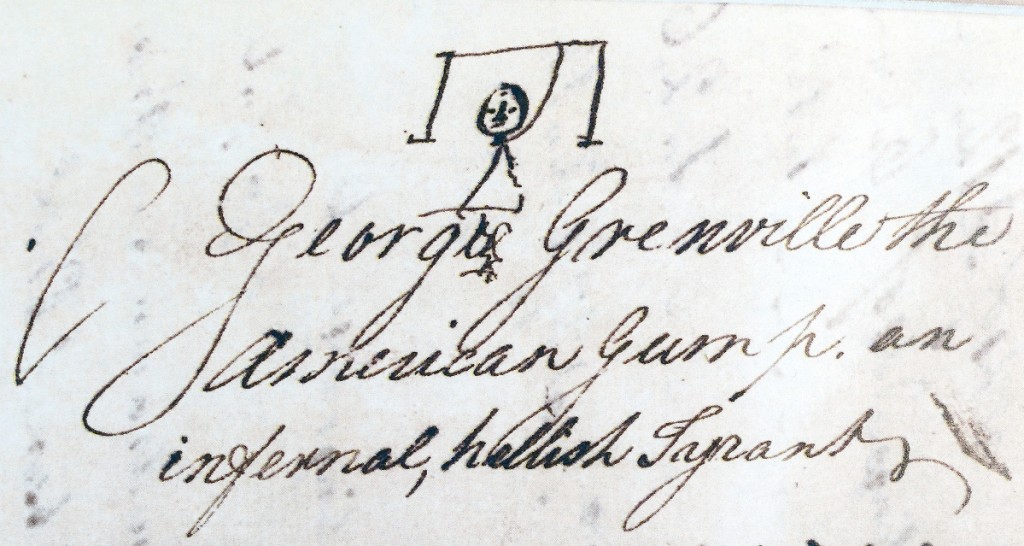 George Grenville the
American Gump. an
infernal, hellish Tyrant